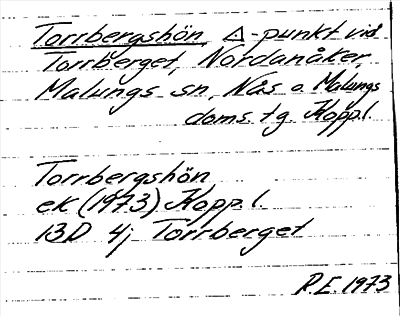 Torrbergshön, △-punkt vid
Torrberget, Nordanåker,
Malungs sn, Nås o. Malungs
doms. tg. Kopp.l.
Torrbergshön
ek (1973) Kopp.l.
13D 4j Torrberget
R.E. 1973